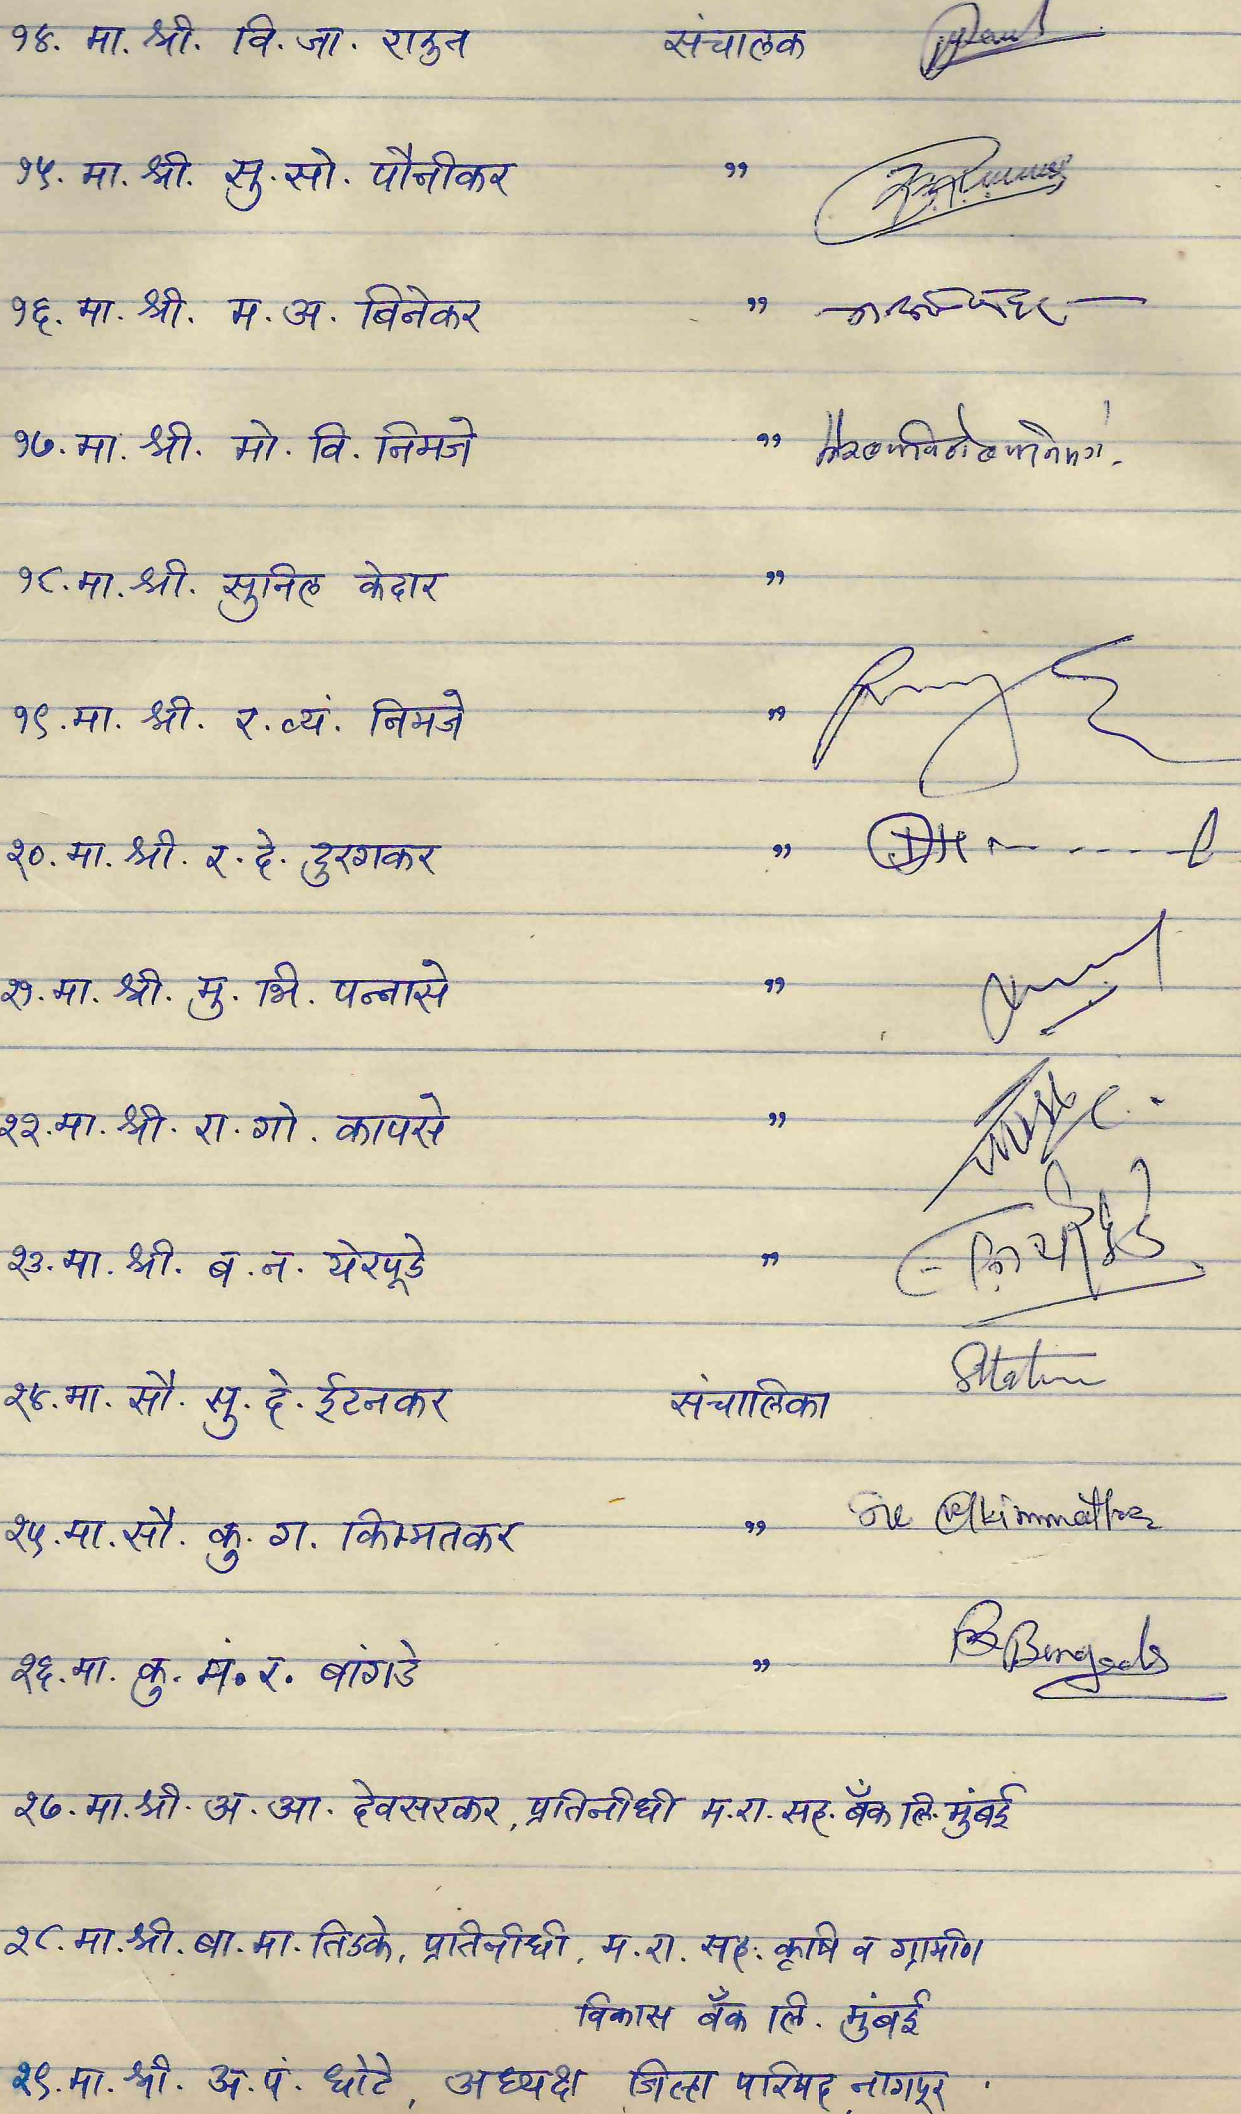 १४. मा. श्री. वि. जा. राऊत संचालक
१५. मा. श्री. सु. सो. पौनीकर "
१६. मा. श्री. म. अ. बिनेकर "
१७. मा. श्री. मो. वि. निमजे "
१८. मा. श्री. सुनिल केदार "
१९. मा. श्री. र. व्यं. निमजे "
२०. मा. श्री. र. दे. दुरगकर "
२१. मा. श्री. मु. भि. पन्नासे "
२२. मा. श्री. रा. गो. कापसे "
२३. मा. श्री. ब. न. येरपूडे "
२४. मा. सौ. सु. दे. ईटनकर संचालिका
२५. मा. सौ. कु. ग. किम्मतकर "
२६. मा. कु. मं. र. बांगडे "
२७. मा. श्री. अ. आ. देवसरकर, प्रतिनीधी म. रा. सह. बँक लि. मुंबई
२८. मा. श्री. बा. मा. तिडके, प्रतिनीधी, म. रा. सह. कृषि व ग्रामीण
विकास बँक लि. मुंबई
२९. मा. श्री. अ. पं. धोटे, अध्यक्ष जिल्हा परिषद नागपूर.